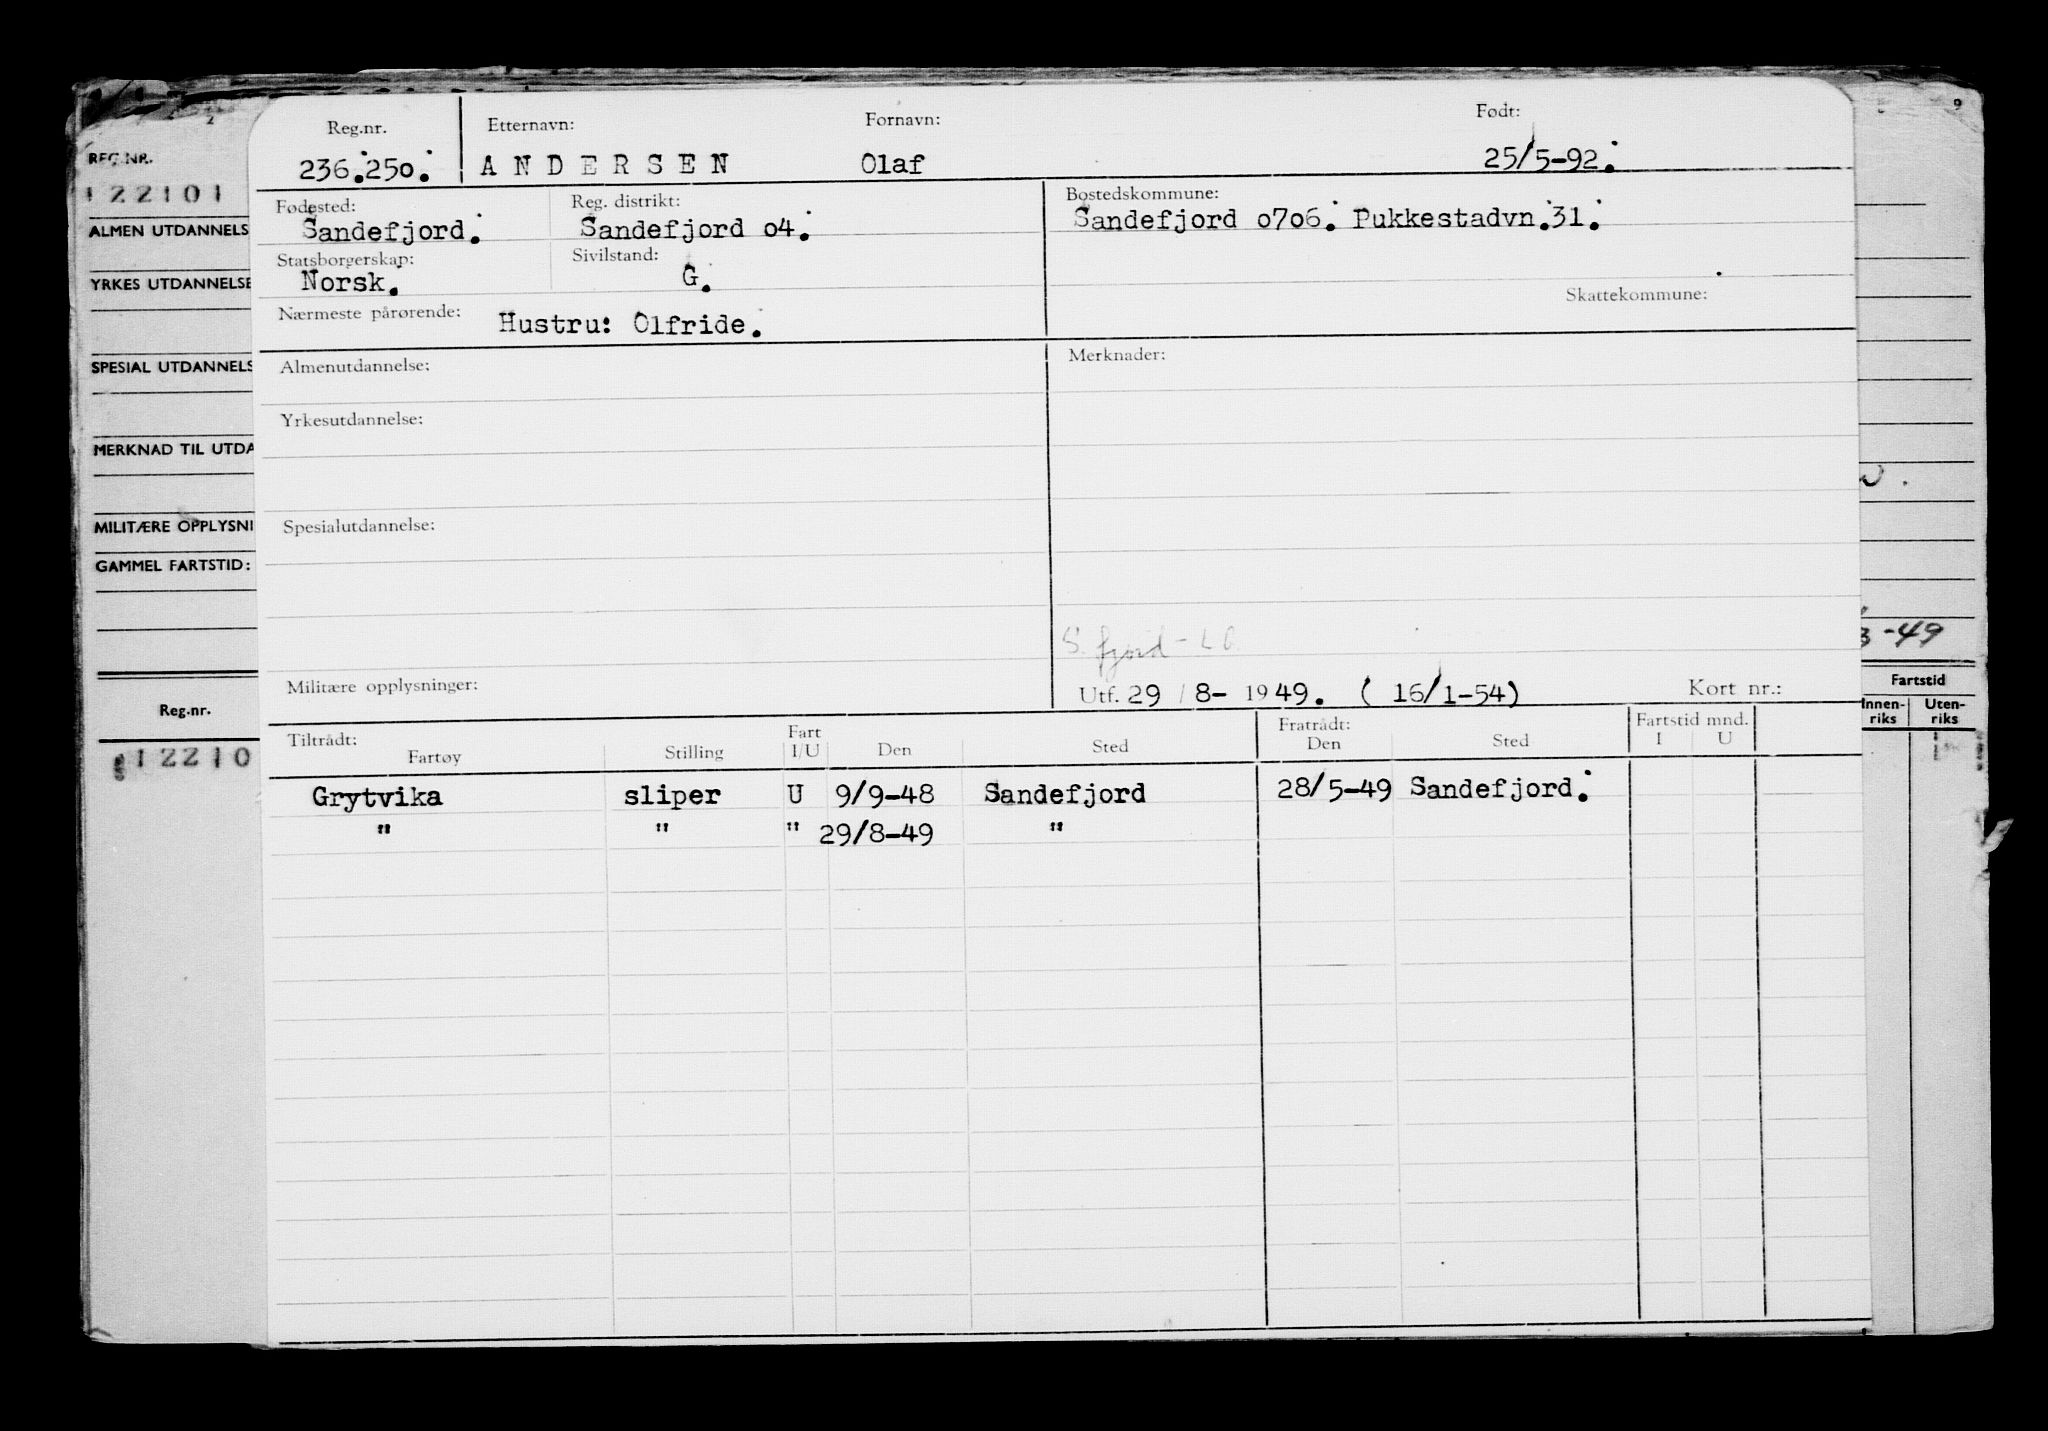 2
9
REG.NR.
122101
ALMEN UTDANNELS
YRKES UTDANNELSE
SPESIAL UTDANNELS
MERKNAD TIL UTDA
MILITÆRE OPPLYSNI
GAMMEL FARTSTID:
Reg.nr.
12210
Reg.nr. Etternavn: Fornavn: Født:
236.250. ANDERSEN Olaf 25/5-92.
Fødested: Reg. distrikt: Bostedskommune:
Sandefjord. Sandefjord o4. Sandefjord o7o6. Pukkestadvn.31.
Statsborgerskap: Sivilstand:
Norsk. G.
Skattekommune:
Nærmeste pårørende: Hustru: Olfride.
Almenutdannelse: Merknader:
Yrkesutdannelse:
Spesialutdannelse:
S. fjord -
Militære opplysninger: Utf. 29 / 8- 1949. ( 16/1-54) Kort nr.:
Tiltrådt: Fart Fratrådt: Fartstid mnd.
Fartøy Stilling I/U Den Sted Den Sted I U
Grytvika sliper U 9/9-48 Sandefjord 28/5-49 Sandefjord.
" " " 29/8-49 "
-49
Fartstid
Innen-riks Uten-riks